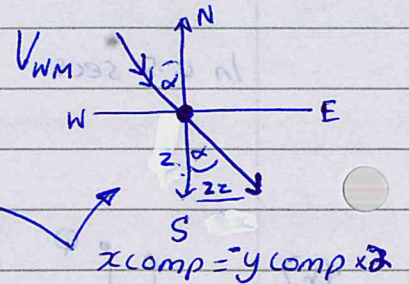 N
V WM
α
W E
z α
2z
S
x comp = -y comp x 2